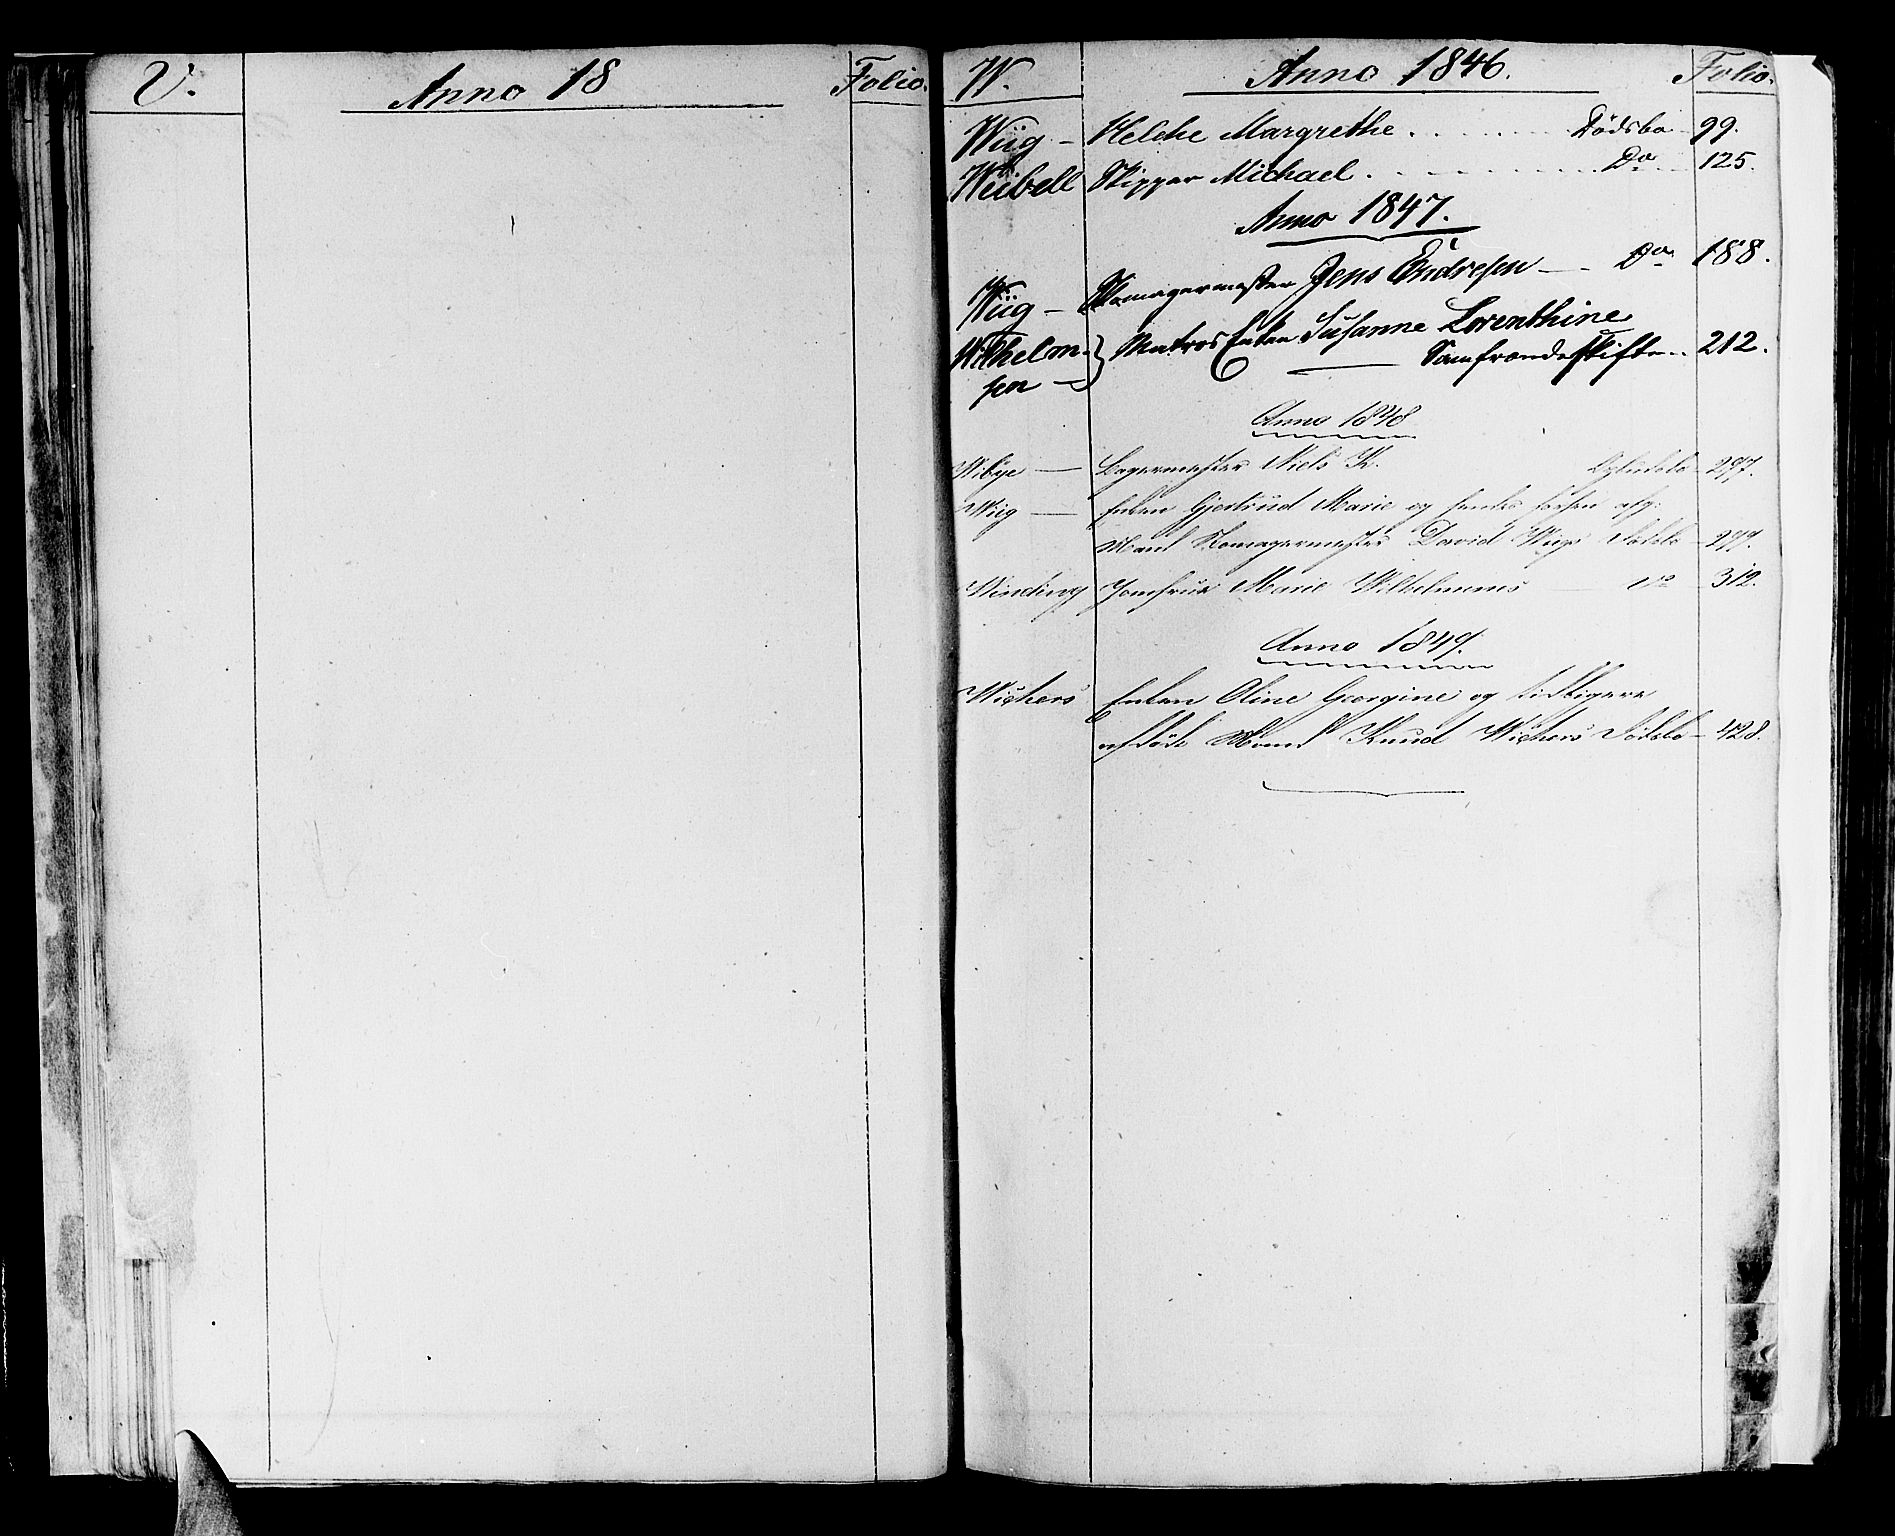 V. Anno 18 Folio.
W. Anno 1846. Folio.
Wiig – Helche Margrethe . . . . . Dödsbo 99.
Weibell Skipper Michael . . . . . Do 125.
Anno 1847.
Wiig – Skomagermester Jens Andresen – Do 188.
Wilhelm- Matros Enken Susanne Lorenthine
sen – Samfrændeskifte .. 212.
Anno 1848
Wibye – Bagermester Niels K. 297.
Wiig – Enken Gjertrud Marie og hendes forhen afg:
Mand Skomagermester David Wiigs Dödsbo –
Winding Jomfrue Marie Wilhelmines – Do – 312.
Anno 1849.
Wichers Enken Oline Georgine og tidligere
afdöde Mand Knud Wichers Dödsbo – 428.